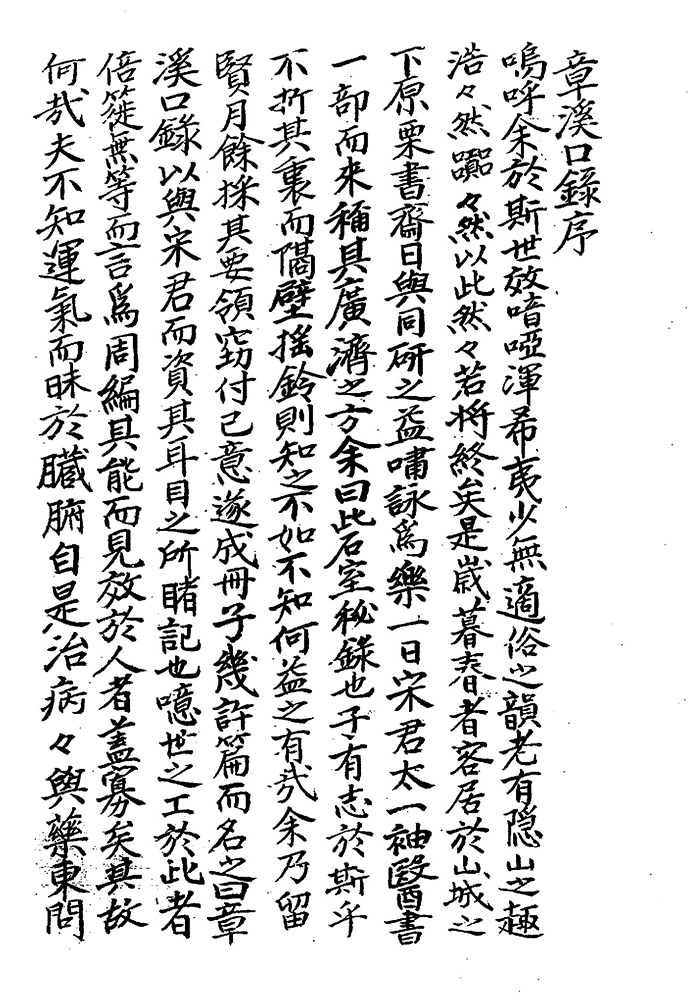 章溪口錄序
嗚呼余於斯世效喑啞渾希夷少無適俗之韻老有隐山之趣
浩々然 々然以此然々若將終矣是歲暮春者客居於山城之
下原栗書齋日與同研之益嘯詠爲樂一日宋君太一袖醫書
一部而來稱其廣濟之方余曰此石室秘錄也子有志於斯乎
不折其裏而隔壁搖鈴則知之不如不知何益之有㢤余乃留
賢月餘採其要領窃付己意遂成冊子幾許篇而名之曰章
溪口錄以與宋君而資其耳目之所睹記也噫世之工於此者
倍簁無等而言爲周編其能而見效於人者蓋寡矣其故
何㢤夫不知運氣而昧於臟腑自是治病々與藥東問